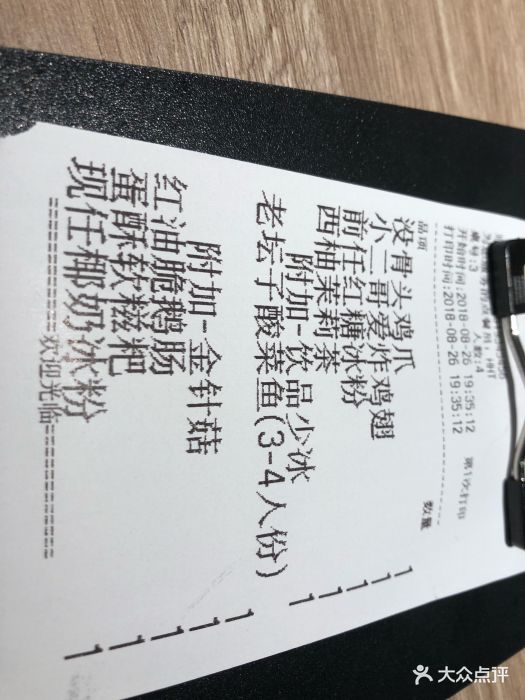 桌号:3
人数:4
开始时间:2018-08-26 19:35:12
打印时间:2018-08-26 19:35:12
第1次打印
品项 数量
没骨头鸡爪 1
小二哥爱炸鸡翅 1
前任红糖冰粉 1
西柚茉莉茶 1
附加-饮品少冰
老坛子酸菜鱼(3-4人份) 1
附加-金针菇 1
红油脆鹅肠 1
蛋酥软糍粑 1
现任椰奶冰粉 1
欢迎光临
大众点评